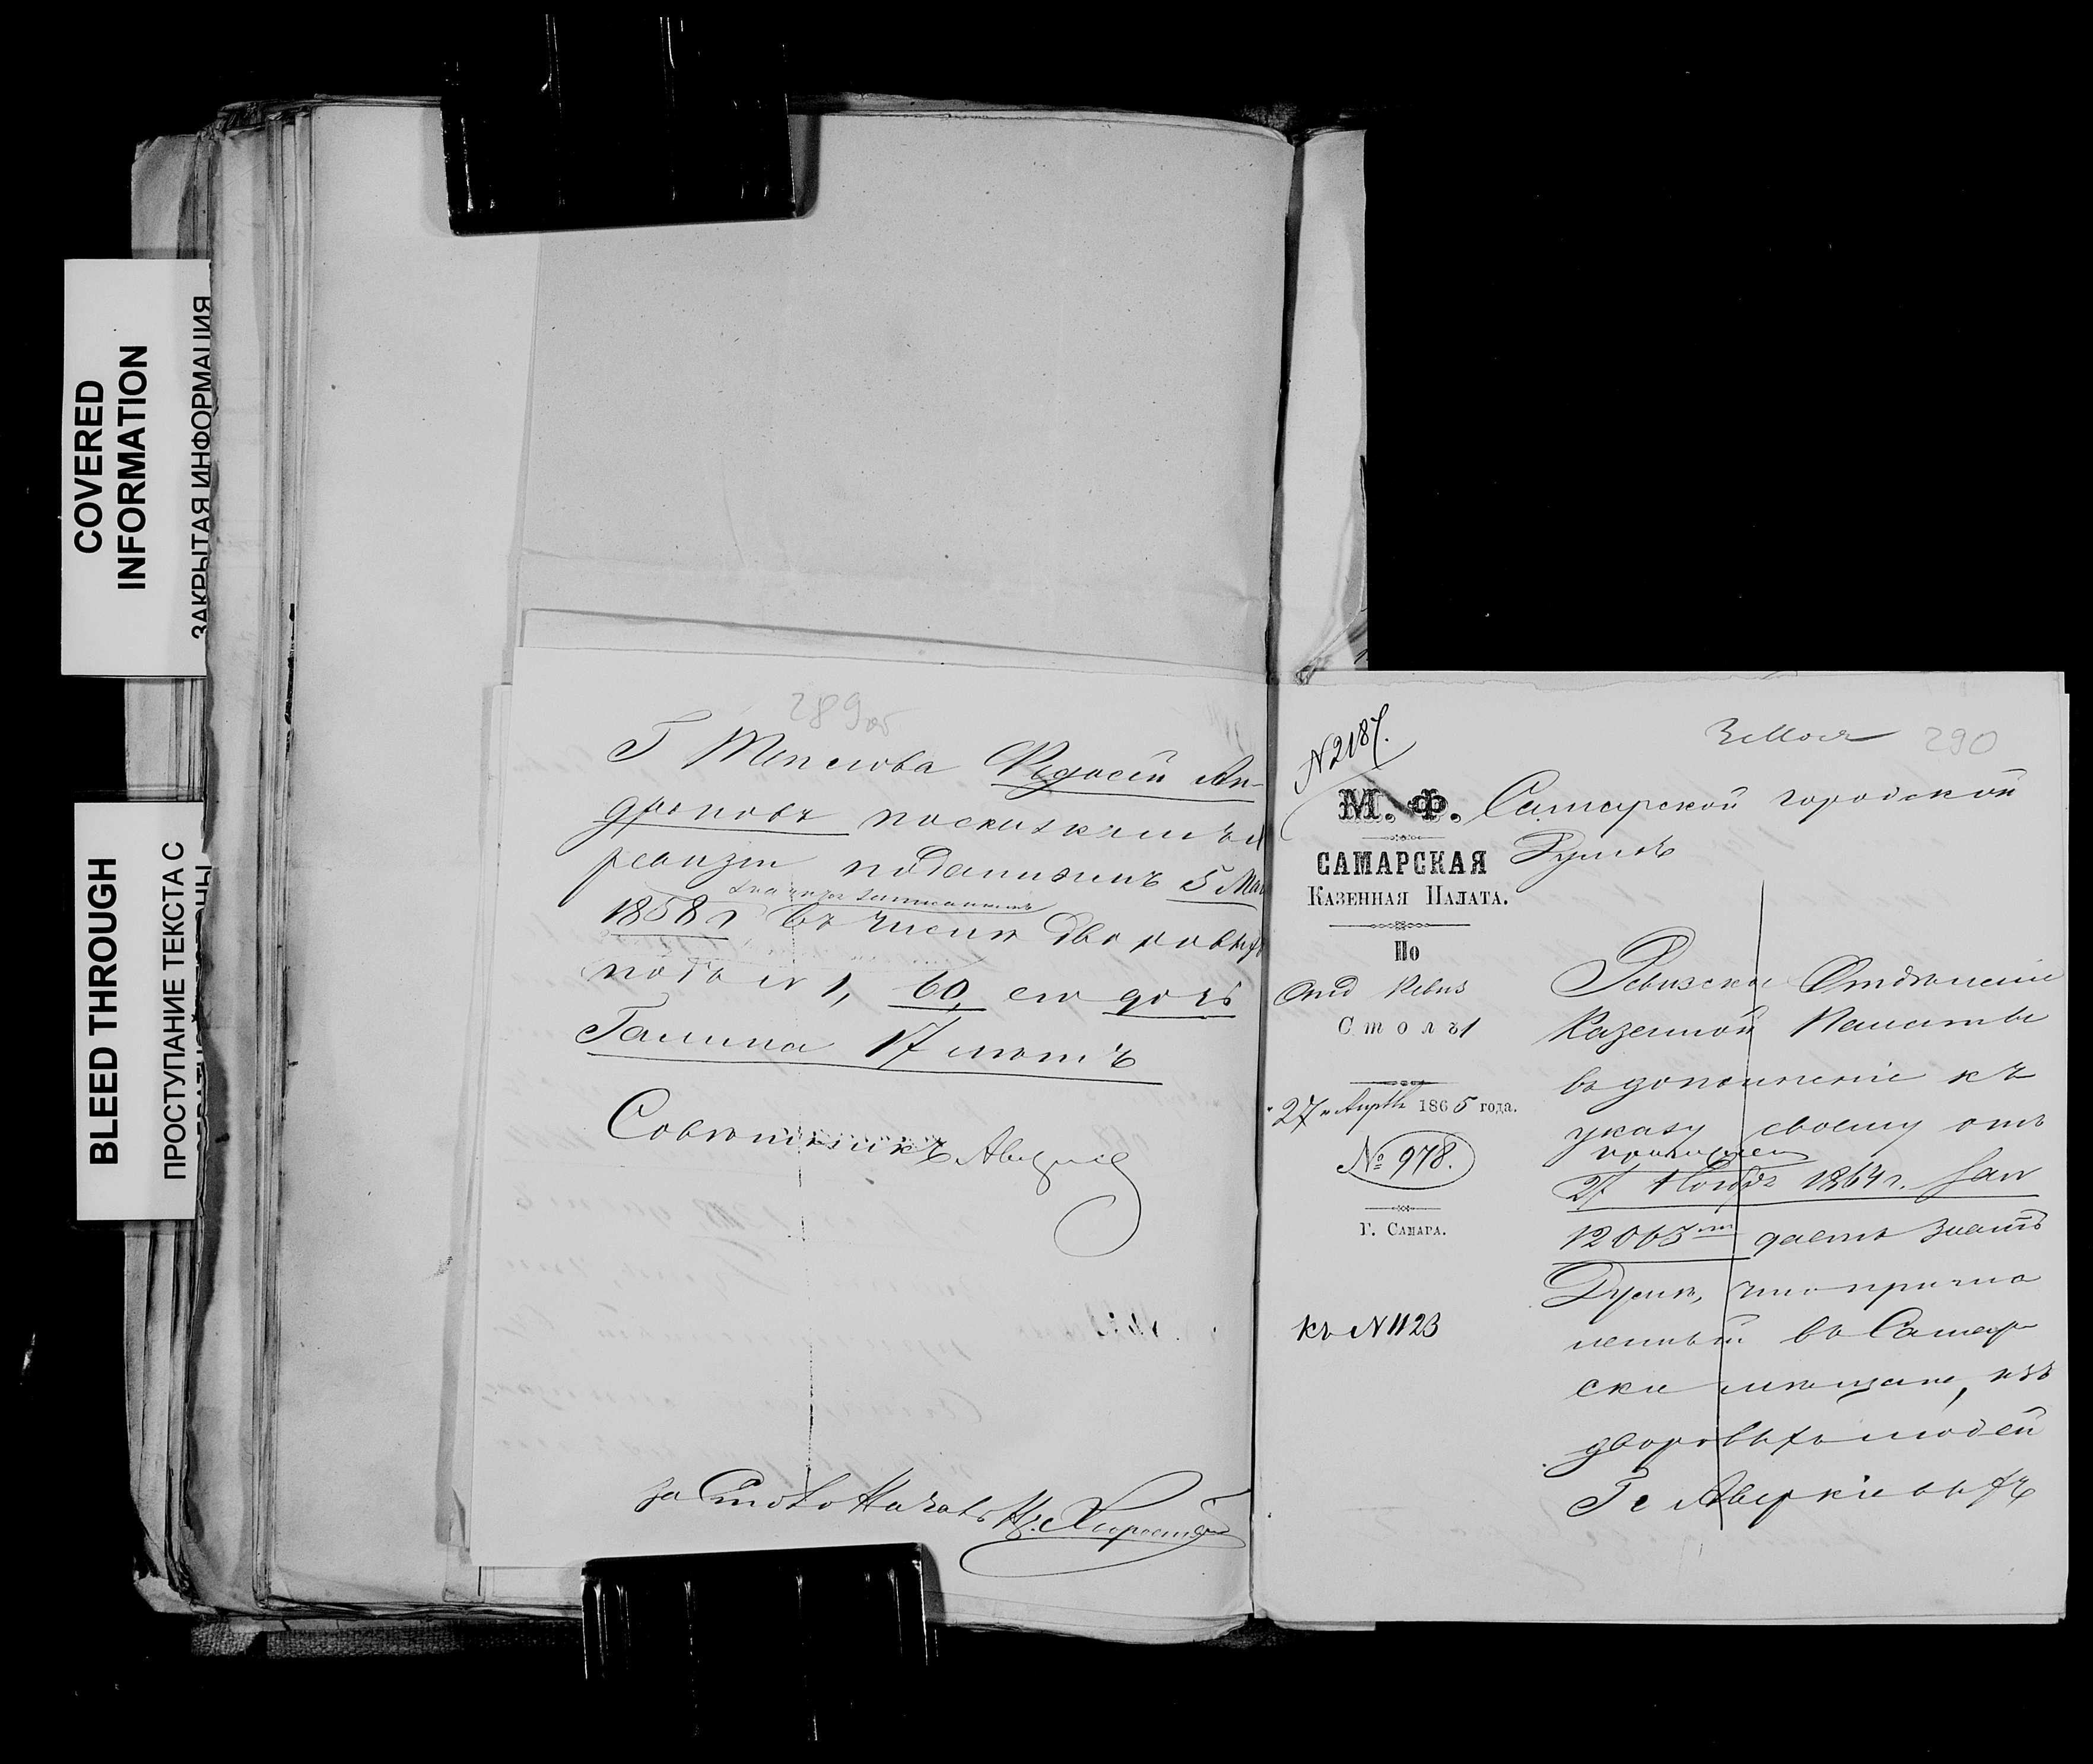 COVERED
INFORMATION
ЗАКРЫТАЯ ИНФОРМАЦИЯ
BLEED THROUGH
ПРОСТУПАНИЕ ТЕКСТА С
289об
Г Теплова Федосей Ан-
дроновъ посказкамъ
ревизіи поданнымъ 5 Мая
значится записаннымъ
1858 г въ числѣ дворовыхъ
подъ № 1, 60, его дочь
Галина 17 лѣтъ
Совѣтникъ
за Столоначаль
№2187.
3 Мая
290
М. Ф.
САМАРСКАЯ
КАЗЕННАЯ ПАЛАТА.
По
Отд Ревиз
Столъ 1
27 Апрѣля 1865 года.
№ 978.
Г. САМАРА.
къ № 1123
Самарской городской
Думѣ
Ревизское Отдѣленіе
Казенной Палаты
въ дополненіе къ
указу своему отъ
27 1864 г. за №
12065 даетъ знать
Думѣ, что причис
ленный въ Самар
скіе мѣщане, изъ
дворовыхъ людей
Гг Аверкіевыхъ